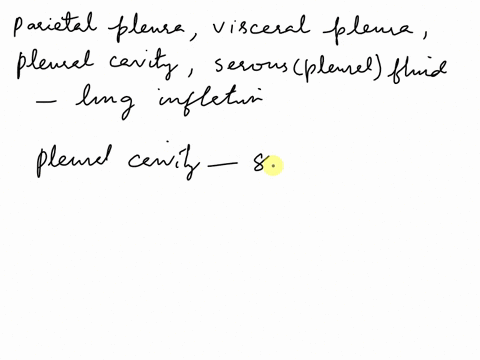 Parietal pleura, visceral pleura,
pleural cavity, serous (pleurel) fluid
— lung infletin
pleurel cavity — s